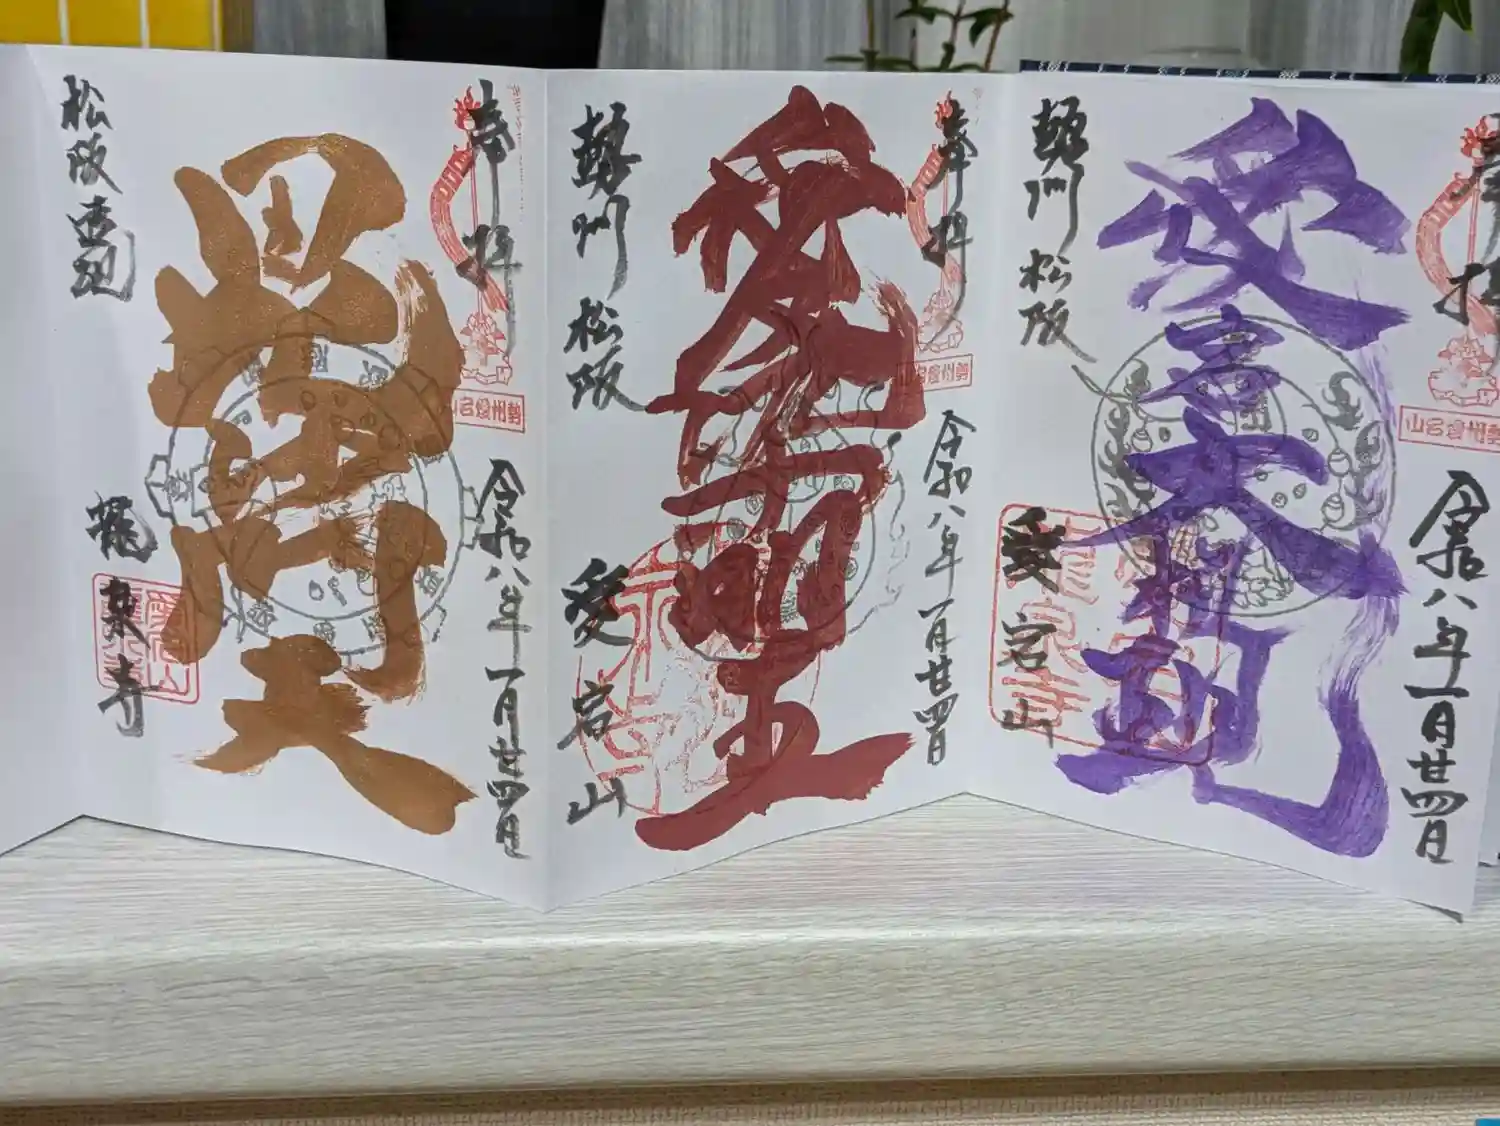 奉拝
令和八年一月廿四日
愛宕大権現
勢州 松阪
愛宕山
勢州愛宕山
奉拝
令和八年一月廿四日
愛染明王
勢州 松阪
愛宕山
勢州愛宕山
奉拝
令和八年一月廿四日
毘沙門天
松阪
龍泉寺
勢州愛宕山